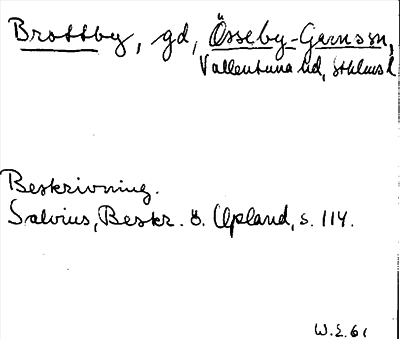 Brottby, gd, Össeby-Garns sn,
Vallentuna hd, Sthlms l
Beskrivning.
Salvius, Beskr. ö. Upland, s. 114.
W.E. 61